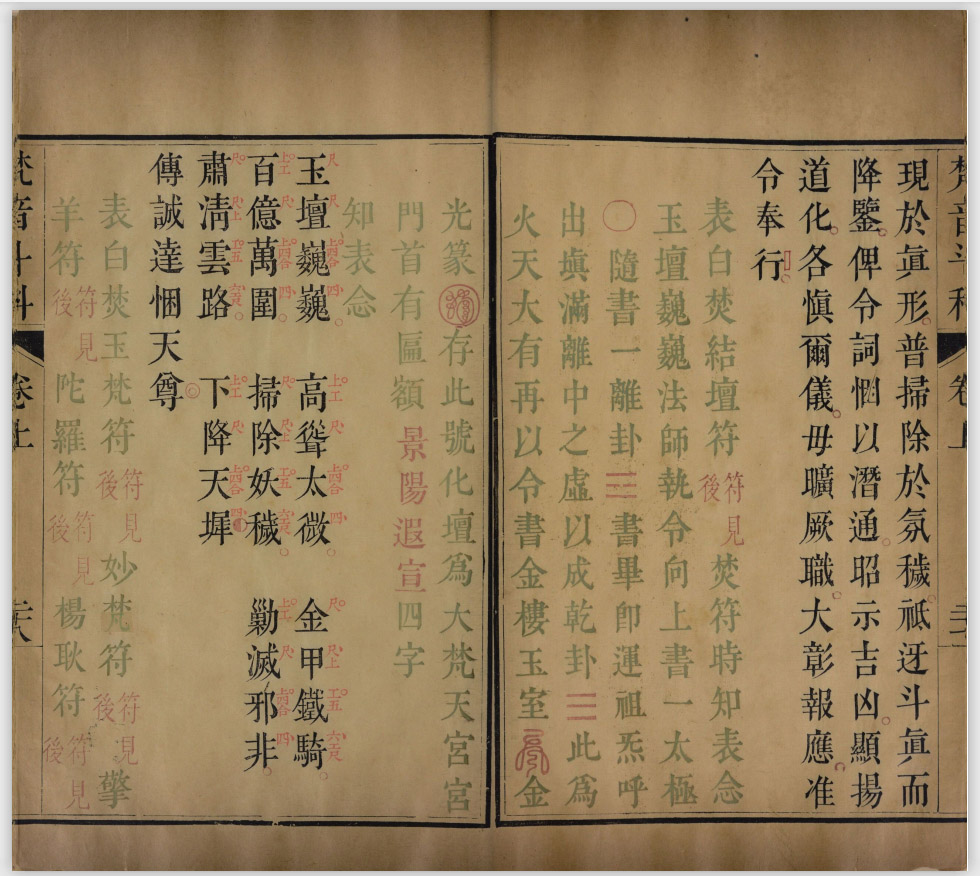 梵音斗科 卷上
現於眞形普掃除於氛穢祗迓斗眞而
降鑒俾令詞悃以潛通昭示吉凶顯揚
道化各愼爾儀毋曠厥職大彰報應准
令奉行
表白焚結壇符 符見後 焚符時知表念
玉壇巍巍法師執令向上書一太極
〇隨書一離卦☲書畢卽運祖炁呼
出塡滿離中之虛以成乾卦☰此爲
火天大有再以令書金樓玉室 金
光篆 存此號化壇爲大梵天宮宮
門首有匾額景陽遐宣四字
知表念
玉壇巍巍 高聳太微 金甲鐵騎
百億萬圍 掃除妖穢 勦滅邪非
肅淸雲路 下降天墀
傳誠達悃天尊
表白焚玉梵符 符見後 妙梵符 符見後 擎
羊符 符見後 陀羅符 符見後 楊耿符 符見後
梵音斗科 卷上